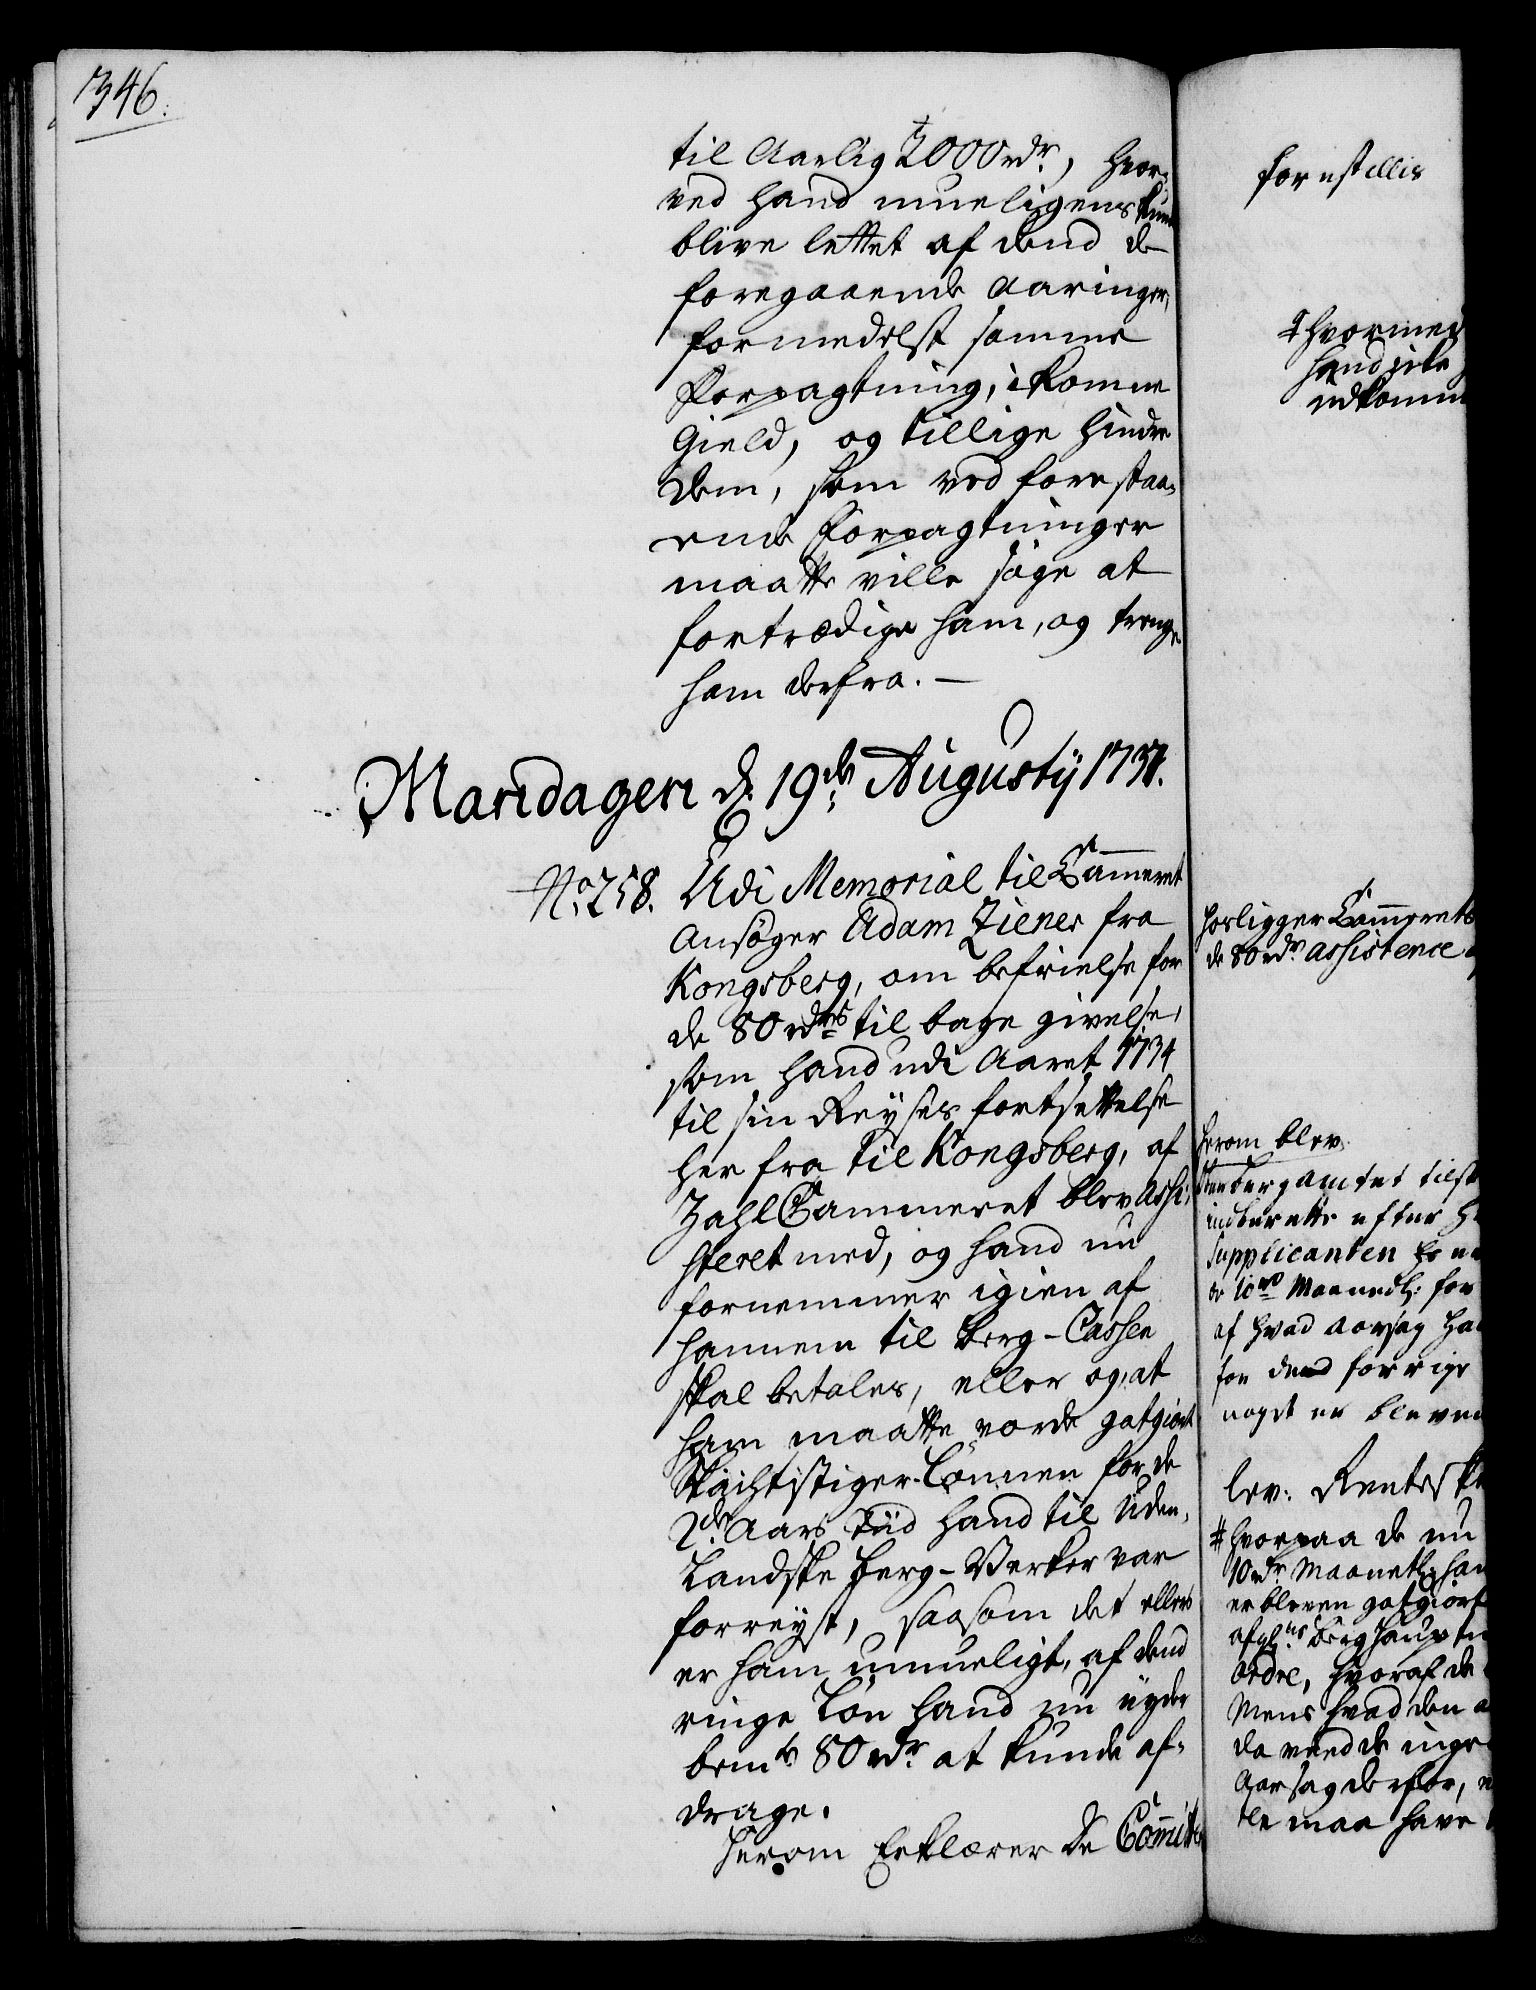 1346.
til Aarlig 2000 rdr, hvor,
ved hand mueligens kunde
blive lettet af dend de
foregaaende Aaringer,
formedelst samme
Forpagtning, ikomne
Gield, og tillige hindre
dem, som ved forestaa,
ende Forpagtninger
maatte ville søge at
fortrædige ham, og trenge
ham derfra. —
Mandagen d. 19de Augustij
No. 258. Udi Memorial til Cammeret
Ansøger Adam Ziener fra
Kongsberg, om befrielse for
de 80 rdrs til bage givelse,
som hand udi Aaret 1734
til sin Reyses fortsettelse
her fra til Kongsberg, af
Zahl Cammeret blev Assi,
steret med, og hand nu
fornemmer igien af
hannem til Berg-Cassen
skal betales, eller og, at
ham maatte vorde gotgiort
Lønnen for de
2de Aars Tiid hand til Uden,
Landske Berg-Verker var
forreyst, saasom det ellers
er ham umueligt, af dend
ringe Løn hand nu nyder
bemte 80 rdr. at kunde af,
drage.
Herom Erklærer De Committe
forestillis
hvormed
hand icke
udkomm
forligger Cammerets
de 80 rdr assistence
herom blev
Bergamtet tilst
indberette efter
Supplicanten
10 Maanedl: for
af hvad Aarsag ha
for dend forrige
noget er bleven
lev: Rentesk
hvorpaa de nu
10 rdr Maanetl: ham
er bleven gotgiort
Berghaupt
ordre, hvoraf de
Mens hvad den
da veed de inge
Aarsag derfor,
maa have